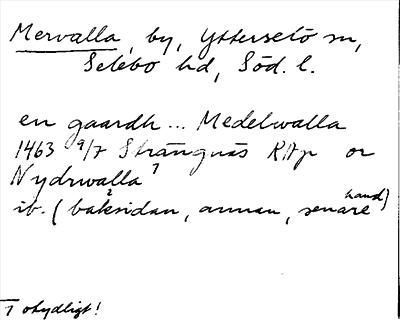 Mervalla, by, Ytterselö sn,
Selebo hd, Söd. l.
en gaardh... Medelwalla
1463 9/7 Strängnäs RAp or
Nydrwalla 1
ib. (baksidan, annan, senare hand)
1 otydligt!